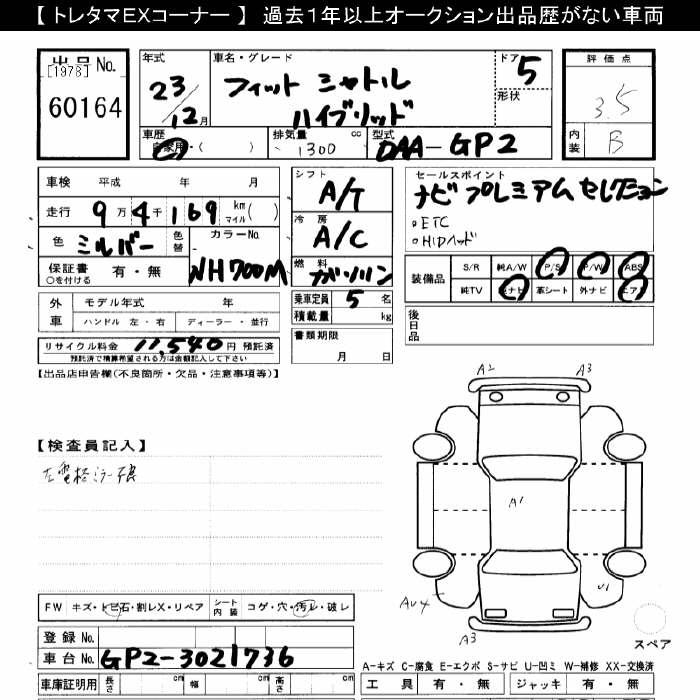 【 トレタマEXコーナー 】 過去１年以上オークション出品歴がない車両
出品 No.
[1978]
60164
年式
23/12月
車名・グレード
フィット シャトル
ハイブリッド
ドア
5
形状
評価点
3.5
内装
B
車歴
自家用・( )
排気量 cc
1300
型式
DAA-GP2
車検 平成 年 月
走行 9万4千169 km マイル( )
色 ミルバー 色替
カラーNo.
NH700M
保証書 有・無
○を付ける
シフト
A/T
冷房
A/C
燃料
ガソリン
乗車定員 5 名
積載量 kg
書類期限
月 日
セールスポイント
ナビプレミアムセレクション
・ETC
・HIDヘッド
装備品 S/R 純A/W P/S P/W ABS
純TV 純ナビ 革シート 外ナビ エアB
後日品
外車 モデル年式 年
ハンドル 左・右 ディーラー・並行
リサイクル料金 11,540 円 預託済
預託済で積算希望される方は金額記入して下さい
【出品店申告欄(不良箇所・欠品・注意事項等)】
【検査員記入】
左電格ミラー不良
A2 A3
A1
AU4 U1
A3
スペア
FW キズ・トビ石・割レX・リペア シート内装 コゲ・穴・汚レ・破レ
登録 No.
車台 No. GP2-3021736
車庫証明用 長さ cm 幅 cm 高さ cm
A-キズ C-腐食 E-エクボ S-サビ U-凹ミ W-補修 XX-交換済
工具 有・無 ジャッキ 有・無